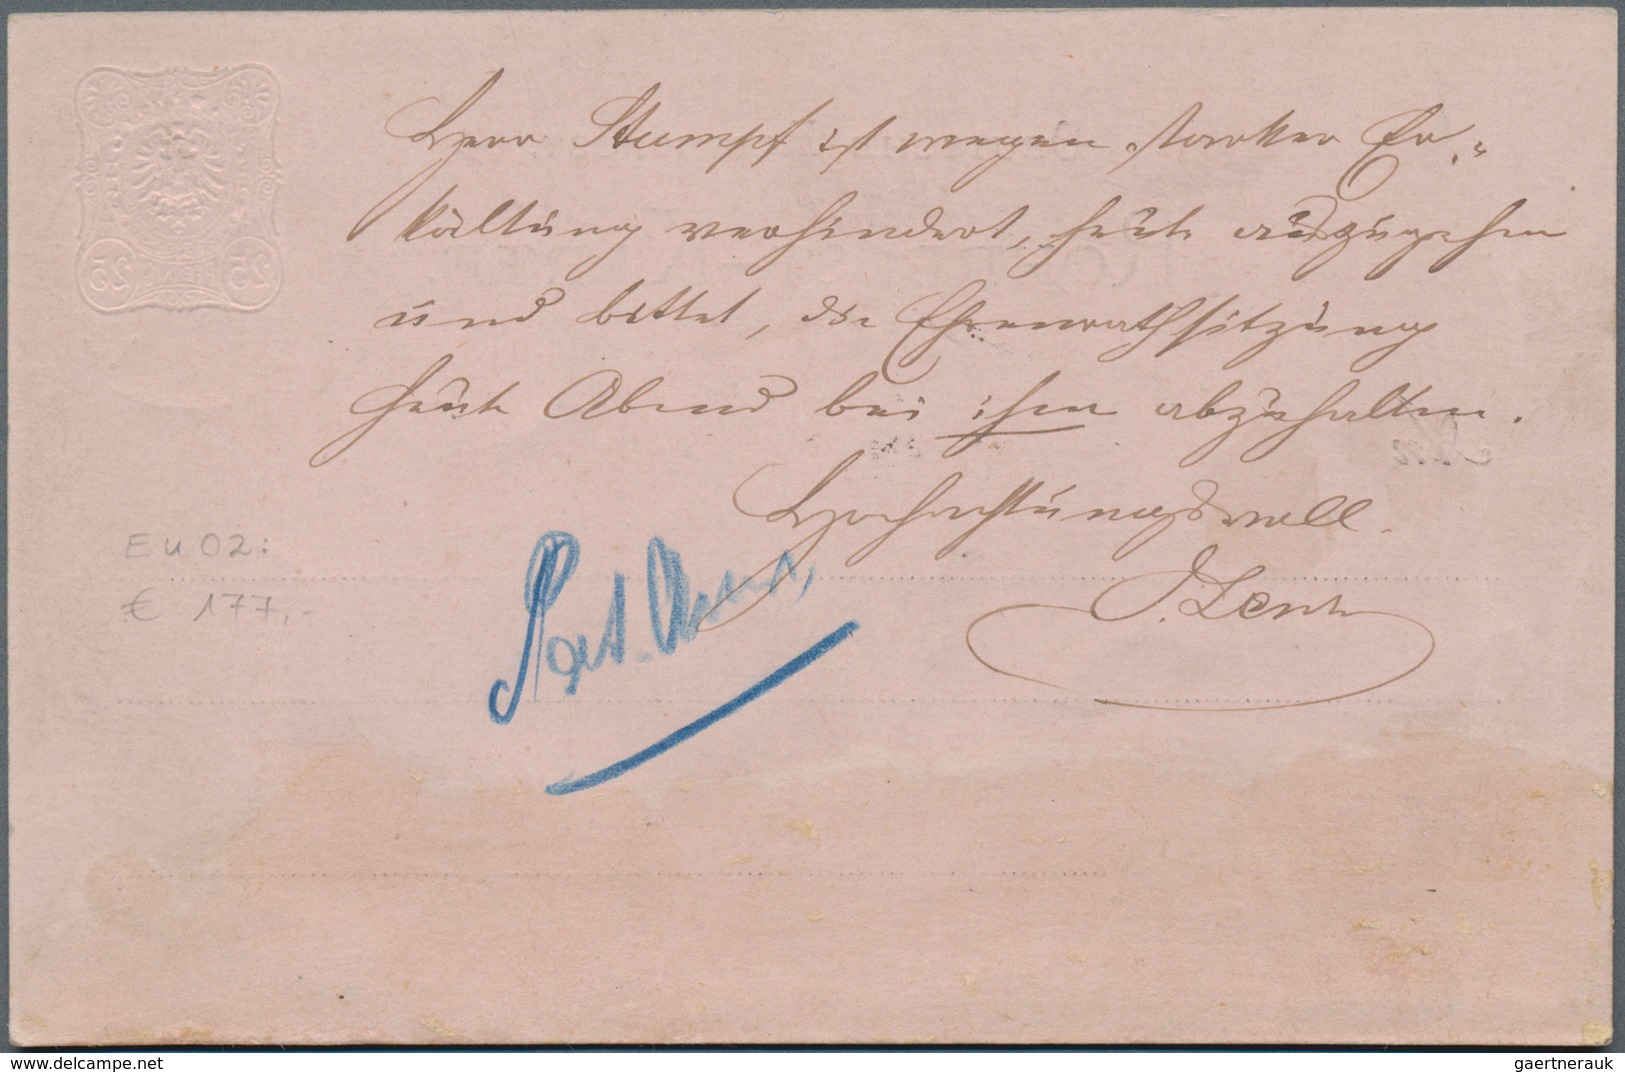 Herr Stumpf ist wegen starker Er-
kältung verhindert, heute auszugehen
und bittet, die Ehrenrathssitzung
heute Abend bei ihm abzuhalten.
Hochachtungsvoll
EU02:
€ 177,-
25 25
delcampe.net
gaertnerauk